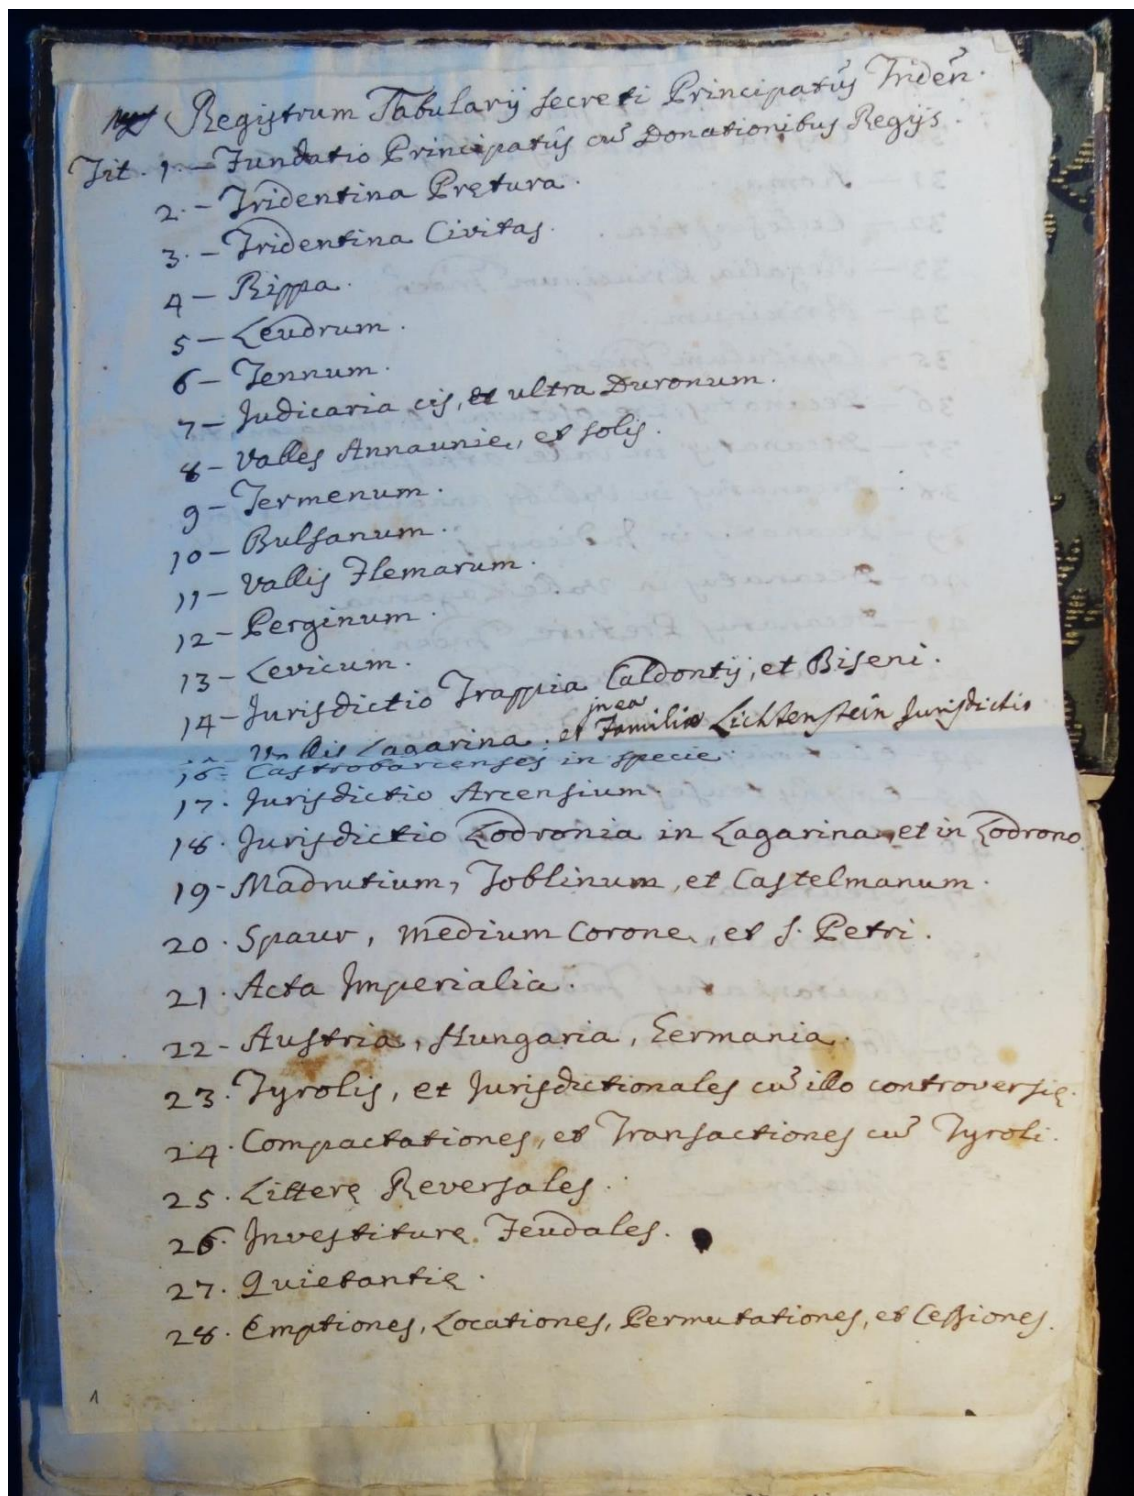 Registrum Tabularij secreti Principatûs Triden̄.
Tit. 1. — Fundatio Principatûs cū Donationibus Regijs.
2. — Tridentina Pretura.
3. — Tridentina Civitas.
4 — Rippa.
5 — Leudrum.
6 — Tennum.
7 — Judicaria cis, et ultra Duronum.
8 — Valles Annaunie, et solis.
9 — Termenum.
10 — Bulsanum.
11 — Vallis Flemarum.
12 — Perginum.
13 — Levicum.
14 — Jurisdictio Trappia Caldontij, et Biseni.
in ea
Vallis Lagarina. et Familiæ Lichtenstein Jurisdictio
16 — Castrobarcenses in specie
17. Jurisdictio Arcensium.
18. Jurisdictio Lodronia in Lagarina, et in Lodrono.
19 - Madrutium, Toblinum, et Castelmanum.
20. Spaur, Medium Corone, et S. Petri.
21. Acta Imperialia.
22 - Austria, Hungaria, Germania.
23. Tyrolis, et Jurisdictionales cū illo controversię.
24. Compactationes, et Transactiones cū Tyroli.
25. Litterę Reversales.
26. Investiturę Feudales.
27. Quietantię.
28. Emptiones, Locationes, Permutationes, et Cessiones.
1